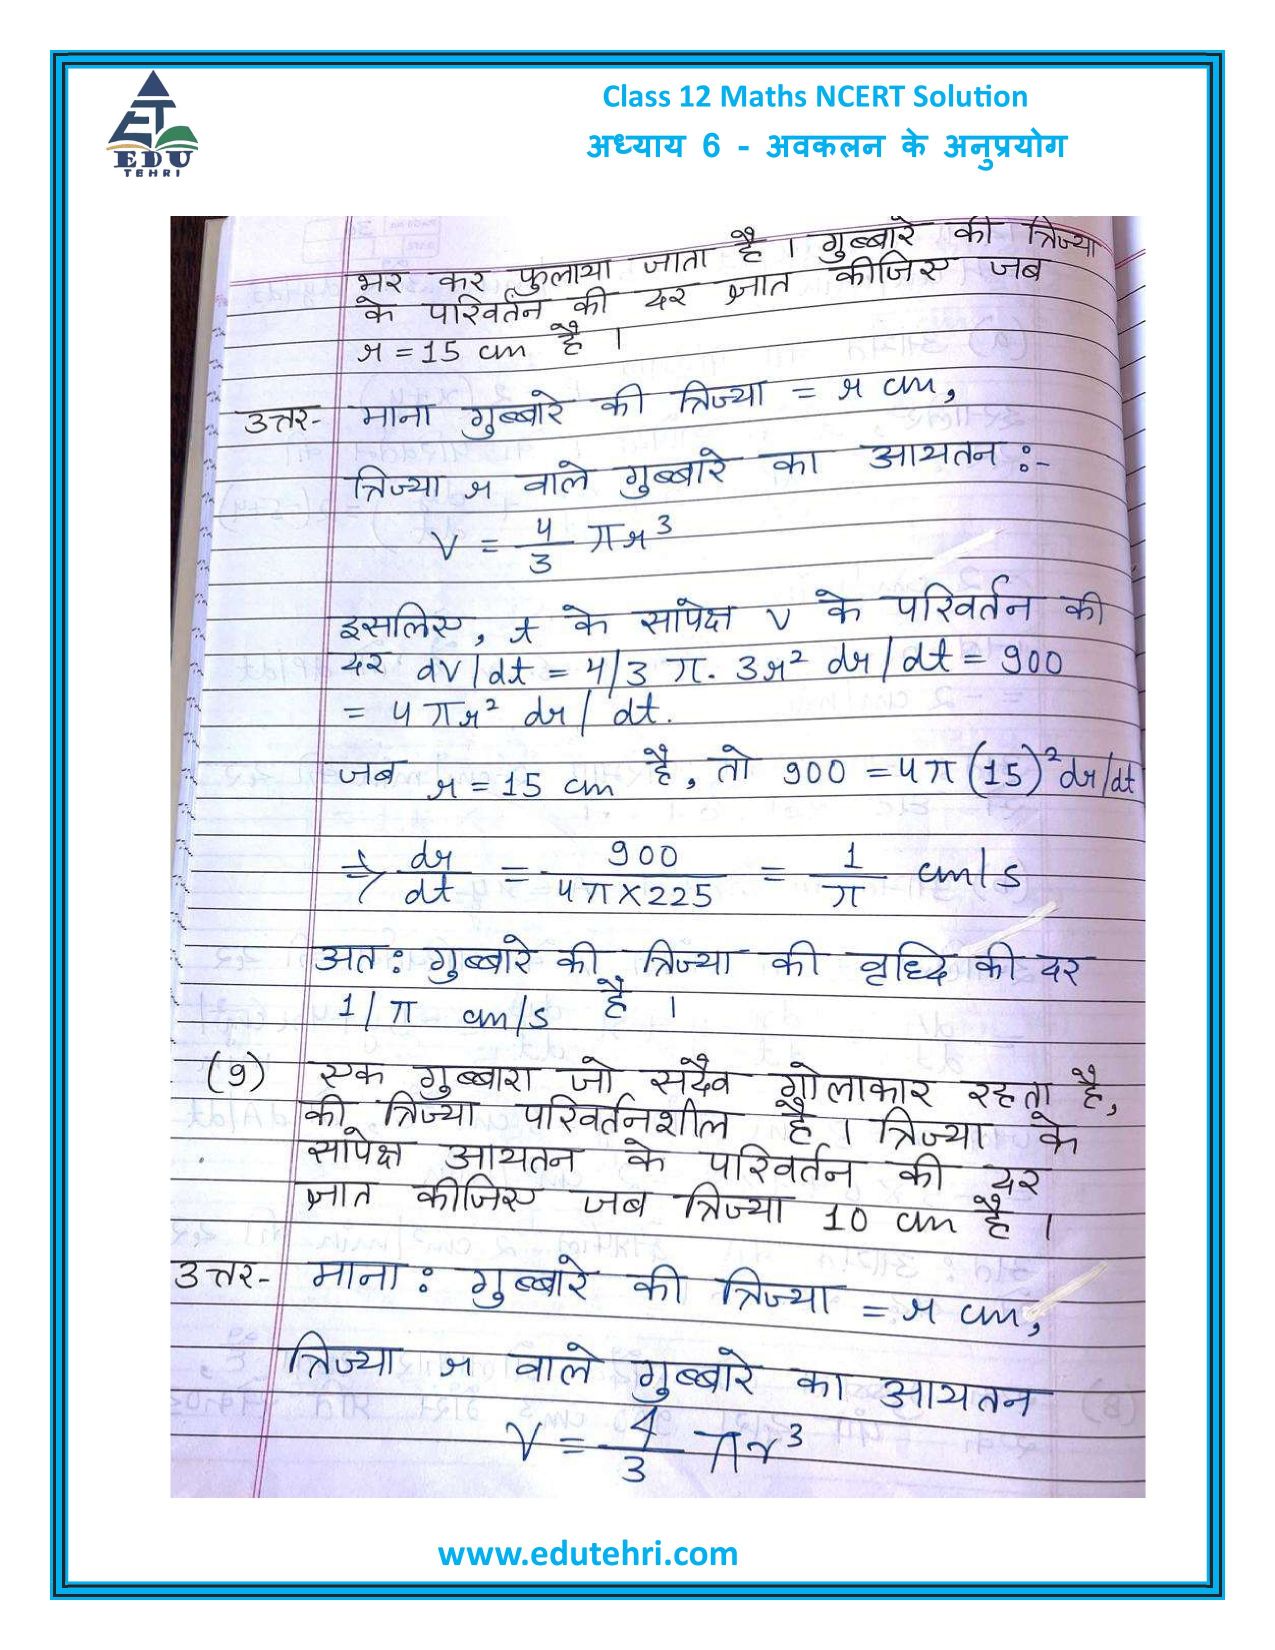 ET
EDU
TEHRI
Class 12 Maths NCERT Solution
अध्याय 6 - अवकलन के अनुप्रयोग
भर कर फुलाया जाता है । गुब्बारे की त्रिज्या
के परिवर्तन की दर ज्ञात कीजिए जब
r = 15 cm है ।
उत्तर- माना गुब्बारे की त्रिज्या = r cm,
त्रिज्या r वाले गुब्बारे का आयतन :-
V = 4/3 πr³
इसलिए, t के सापेक्ष V के परिवर्तन की
दर dV/dt = 4/3 π. 3r² dr/dt = 900
= 4πr² dr/dt.
जब r = 15 cm है, तो 900 = 4π(15)² dr/dt
⇒ dr/dt = 900/4π×225 = 1/π cm/s
अत: गुब्बारे की त्रिज्या की वृध्दि की दर
1/π cm/s है ।
(9) एक गुब्बारा जो सदैव गोलाकार रहता है,
की त्रिज्या परिवर्तनशील है । त्रिज्या के
सापेक्ष आयतन के परिवर्तन की दर
ज्ञात कीजिए जब त्रिज्या 10 cm है ।
उत्तर- माना : गुब्बारे की त्रिज्या = r cm,
त्रिज्या r वाले गुब्बारे का आयतन
V = 4/3 πr³
www.edutehri.com